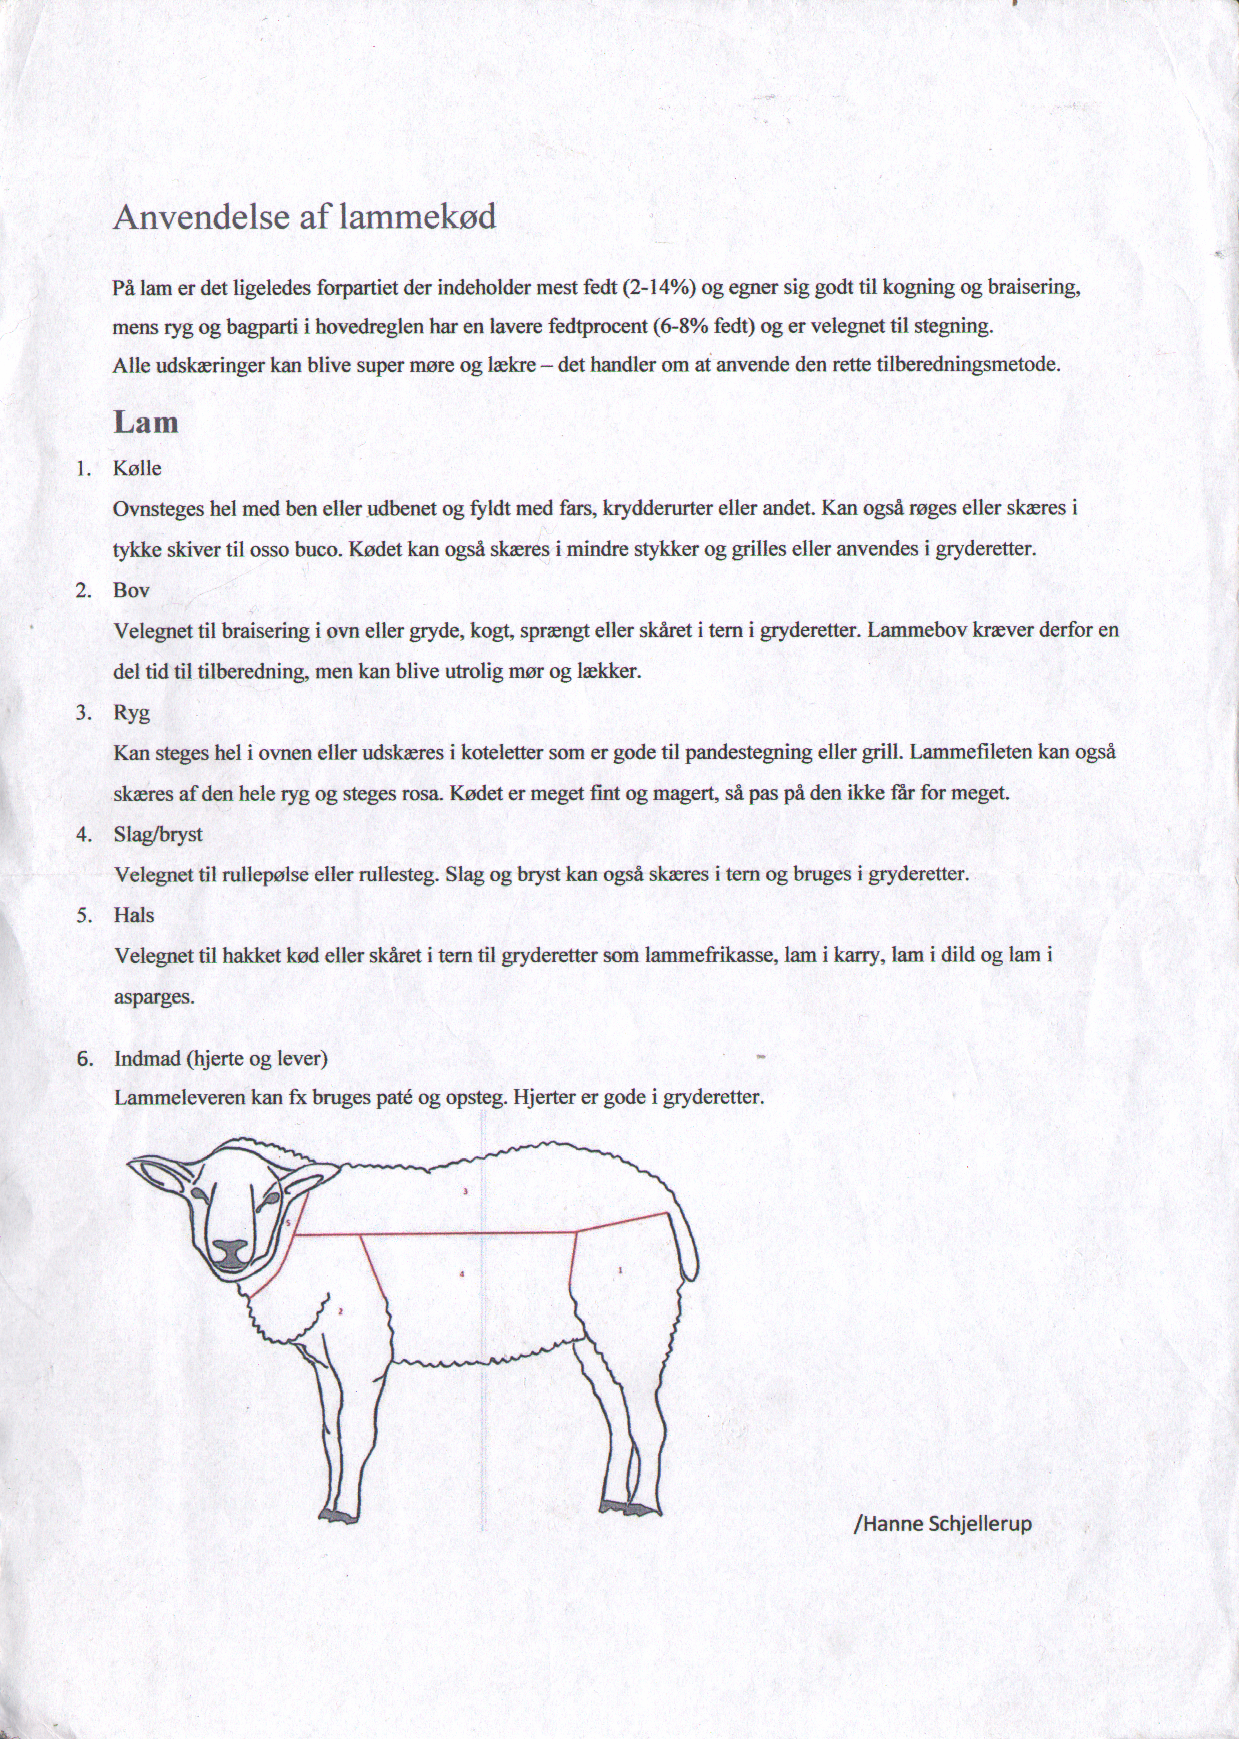 Anvendelse af lammekød
På lam er det ligeledes forpartiet der indeholder mest fedt (2-14%) og egner sig godt til kogning og braisering,
mens ryg og bagparti i hovedreglen har en lavere fedtprocent (6-8% fedt) og er velegnet til stegning.
Alle udskæringer kan blive super møre og lækre – det handler om at anvende den rette tilberedningsmetode.
Lam
1. Kølle
Ovnsteges hel med ben eller udbenet og fyldt med fars, krydderurter eller andet. Kan også røges eller skæres i
tykke skiver til osso buco. Kødet kan også skæres i mindre stykker og grilles eller anvendes i gryderetter.
2. Bov
Velegnet til braisering i ovn eller gryde, kogt, sprængt eller skåret i tern i gryderetter. Lammebov kræver derfor en
del tid til tilberedning, men kan blive utrolig mør og lækker.
3. Ryg
Kan steges hel i ovnen eller udskæres i koteletter som er gode til pandestegning eller grill. Lammefileten kan også
skæres af den hele ryg og steges rosa. Kødet er meget fint og magert, så pas på den ikke får for meget.
4. Slag/bryst
Velegnet til rullepølse eller rullesteg. Slag og bryst kan også skæres i tern og bruges i gryderetter.
5. Hals
Velegnet til hakket kød eller skåret i tern til gryderetter som lammefrikasse, lam i karry, lam i dild og lam i
asparges.
6. Indmad (hjerte og lever)
Lammeleveren kan fx bruges paté og opsteg. Hjerter er gode i gryderetter.
3
5
4
1
2
/Hanne Schjellerup